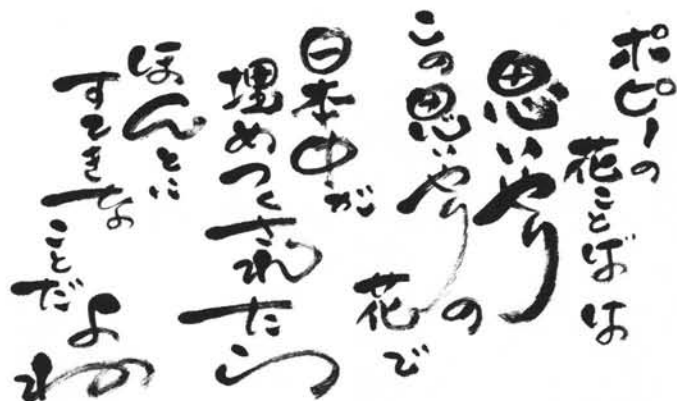 ポピーの
花ことばは
思いやり
この思いやりの
花で
日本中が
埋めつくされたら
ほんとに
すてきな
ことだ
よね